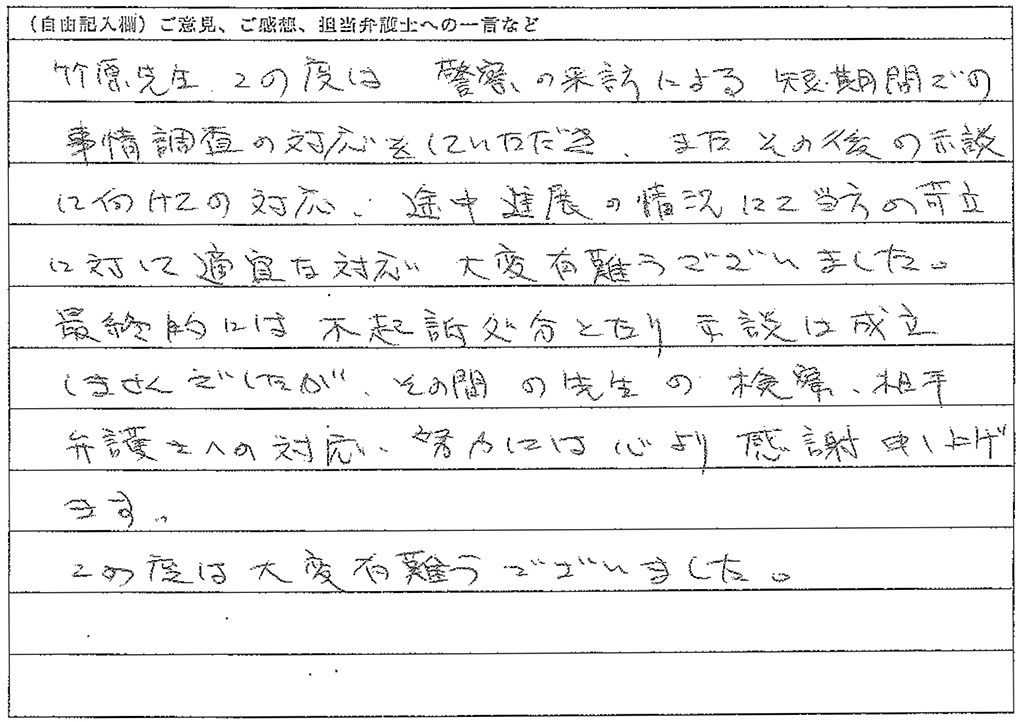 （自由記入欄）ご意見、ご感想、担当弁護士への一言など
竹原先生、この度は 警察の来訪による 短期間での
事情調査の対応をしていただき、またその後の示談
に向けての対応、途中進展の情況にて当方の
に対して適宜な対応 大変有難うございました。
最終的には不起訴処分となり示談は成立
しませんでしたが、その間の先生の検察、相手
弁護士への対応、努力には心より感謝申し上げ
ます。
この度は大変有難うございました。